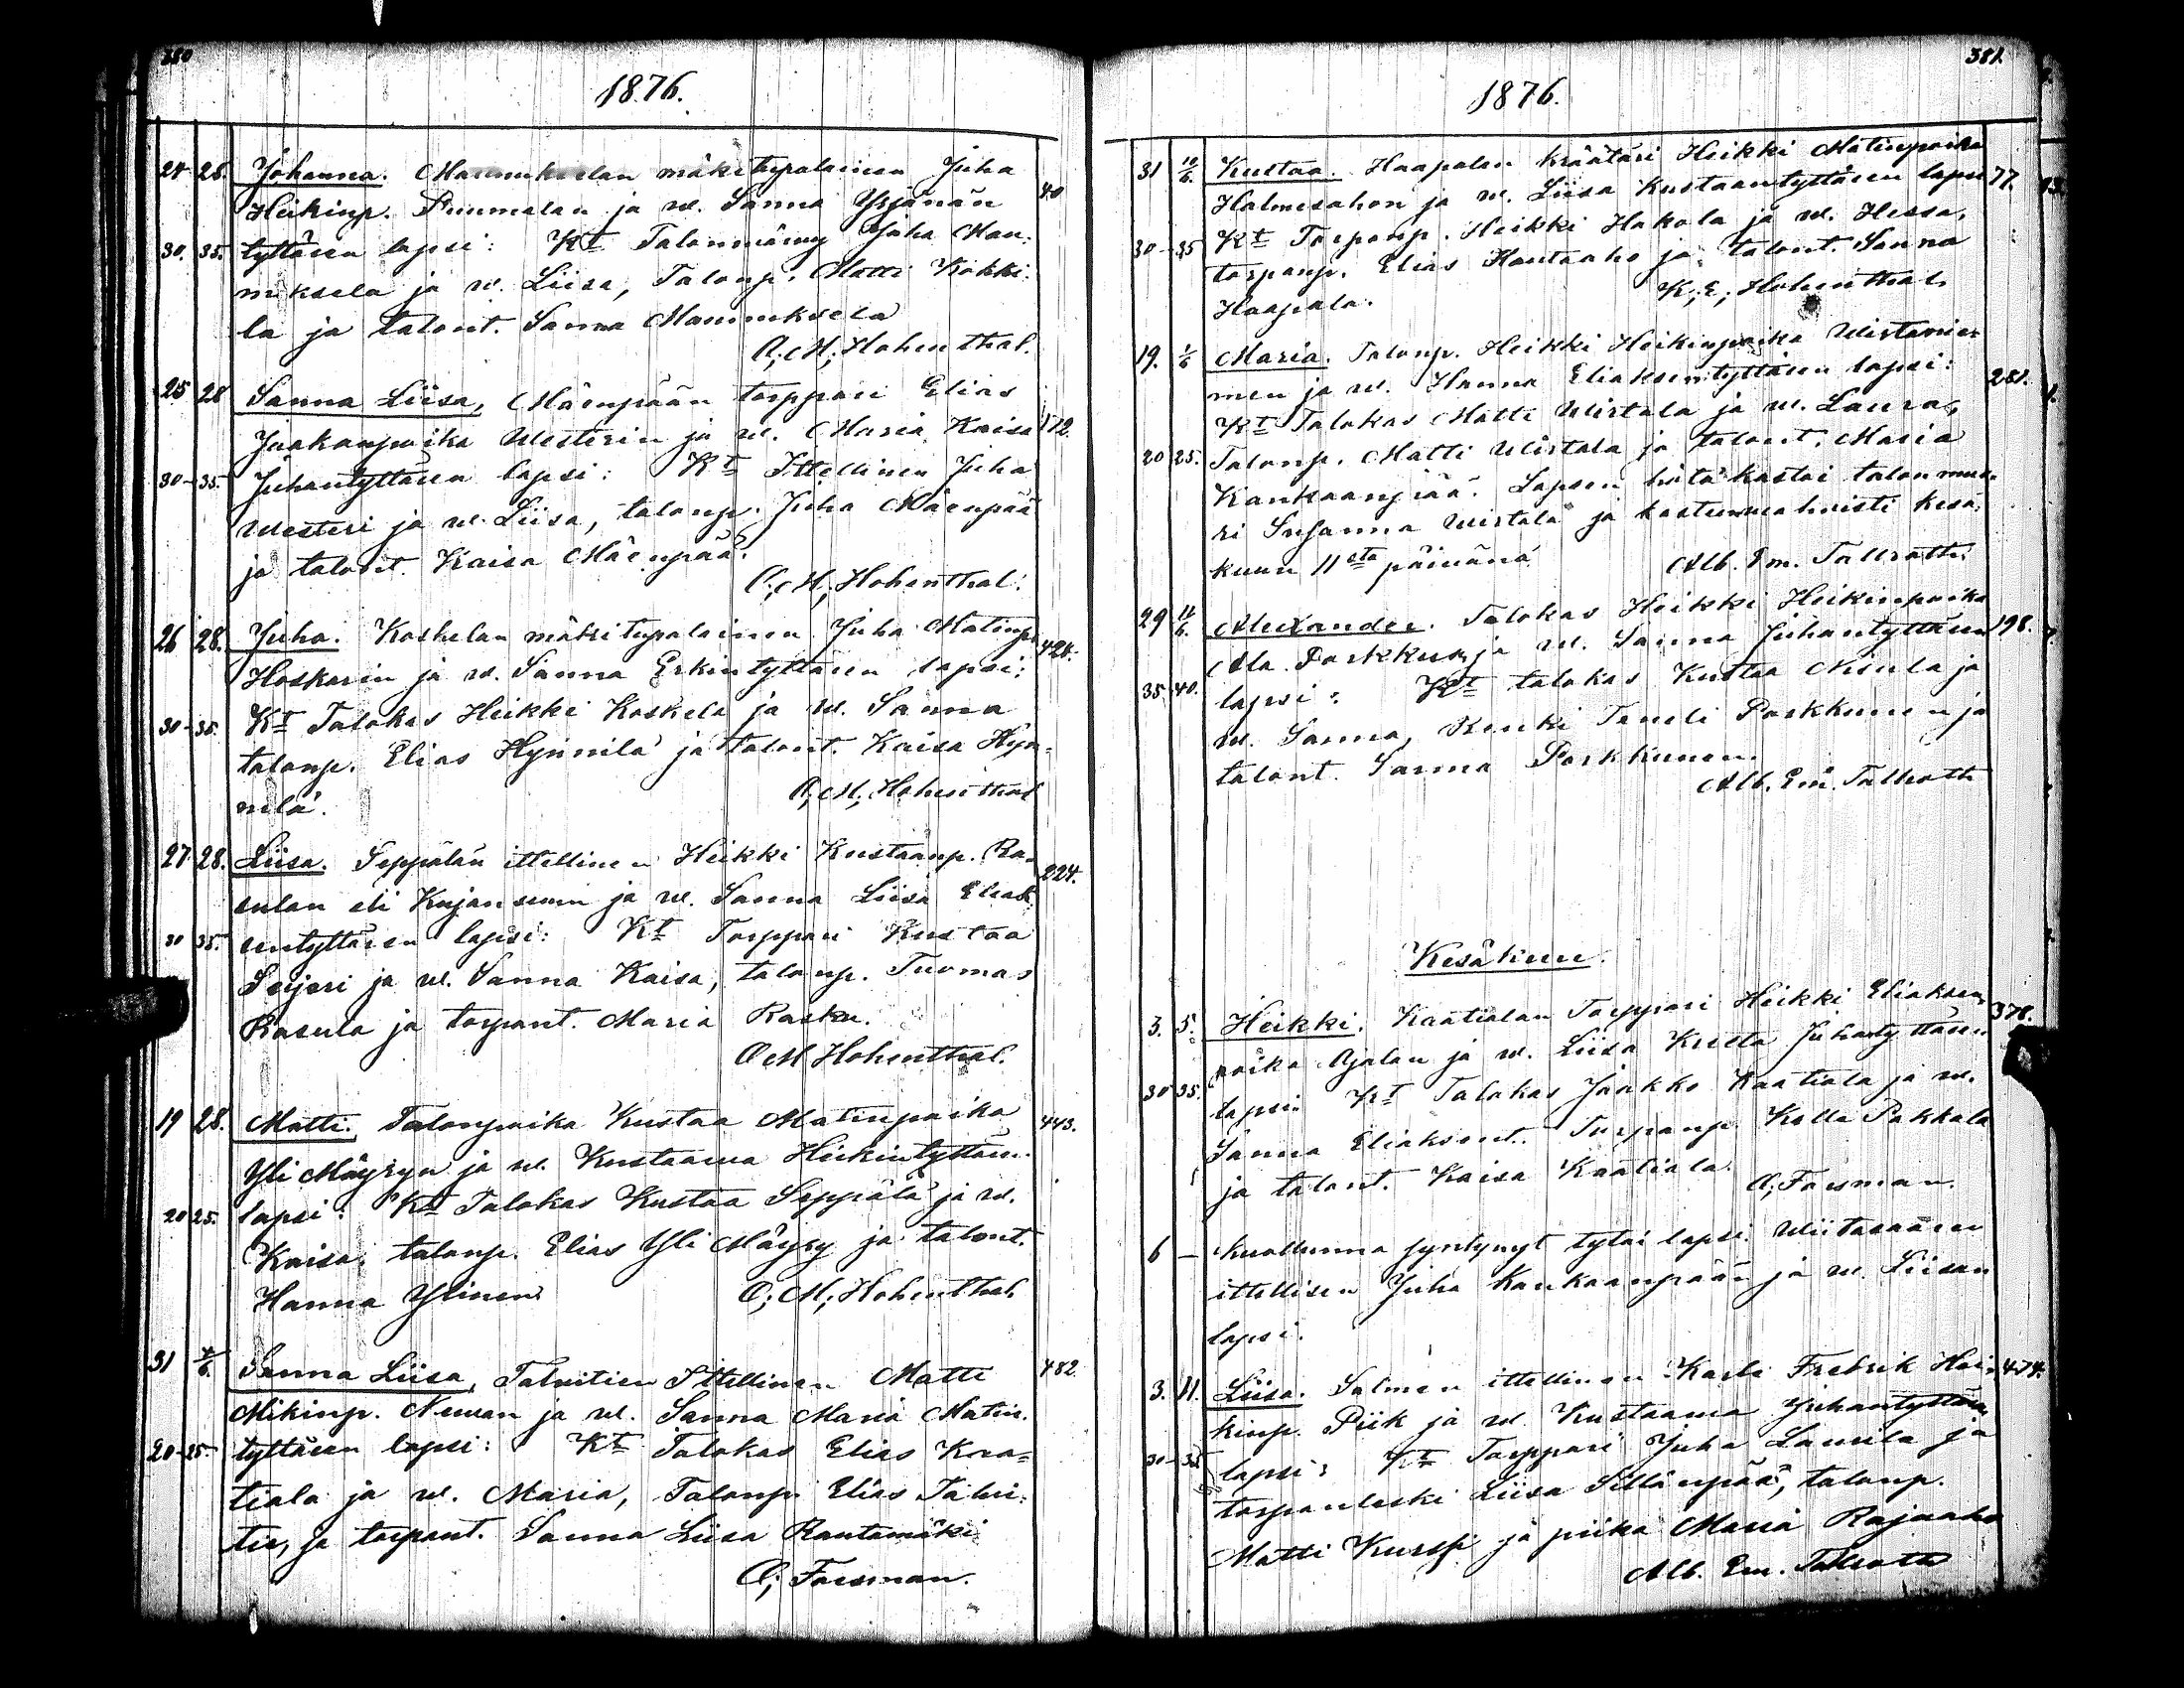 380
1876.
24 28. Johanna. Mannukselan mäkitupalainen Juha 40
Heikinp. Puumalan ja w. Sanna Yrjänän
30. 35. tyttären lapsi: Kt Talonmäeny Juha Man:
nuksela ja w. Liisa, Talonp. Matti Kokki:
la ja talont. Sanna Mannuksela
O; M; Hohenthal.
25 28 Sanna Liisa, Mäenpään torppari Elias
Jaakonpoika Westerin ja w. Maria Kaisa 172
30-35. Juhantyttären lapsi: Kt Ittellinen Juha
Westeri ja w. Liisa, talonp. Juha Mäenpää
ja talont. Kaisa Mäenpää.
O; M; Hohenthal.
26 28. Juha. Koskelan mäkitupalainen Juha Matinp.
Hoskarin ja w. Sanna Erkintyttären lapsi:
30-35. Kt Talokas Heikki Koskela ja w. Sanna
talonp. Elias Hynnilä ja talont. Kaisa Hyn=
nilä.
O; M; Hohenthal
27 28. Liisa. Seppälän ittellinen Heikki Kustaanp. Ra= 224.
sulan eli Kujansuun ja w. Sanna Liisa Eliak
30 35. sentyttären lapsi: Kt Torppari Kustaa
Seijari ja w. Sanna Kaisa, talonp. Tuomas
Rasula ja torpant. Maria Rasku.
O M Hohenthal.
19 28. Matti. Talonpoika Kustaa Matinpoika 443.
Yli Mäyryn ja w. Kustaawa Heikintyttären
20 25. lapsi: Kt Talokas Kustaa Seppälä ja w.
Kaisa, talonp. Elias Yli Mäyry ja talont.
Hanna Ylinen
O; M; Hohenthal
31 4/6. Sanna Liisa, Talvitien Ittellinen Matti 482
Mikinp. Neuvan ja w. Sanna Maria Matin.
20-25. tyttären lapsi: Kt Talokas Elias Kaa=
tiala ja w. Maria, Talonp. Elias Talvi:
tie, ja torpant. Sanna Liisa Rantamäki
O; Forsman.
381.
1876.
31 10/6. Kustaa. Haapalan kräätäri Heikki Matinpoika
Halmesahon ja w. Liisa Kustaantyttären lapsi 77.
30-35 Kt Torpanp. Heikki Hakola ja w. Hessa,
torpanp. Elias Hautaaho ja talont. Sanna
Haapala.
K; E; Hohenthal.
19. 1/6 Maria. Talonp. Heikki Heikinpoika Wirtanie
men ja w. Hanna Eliaksentyttären lapsi: 281.
Kt Talokas Matti Wirtala ja w. Laura,
20 25. Talonp. Matti Wirtala ja talont. Maria
Kankaanpää. Lapsen hätäkastoi talon muo
ri Susanna Wirtala ja kaste wahvisti kesä
kuun 11sta päivänä
Alb. Em. Tallroth
29 11/6. Alexander. Talokas Heikki Heikinpoika
Ala Porkkun ja w. Sanna Juhantyttären 198.
35 40. lapsi: Kt talokas Kustaa Niula ja
w. Sanna, Renki Taneli Porkkunen ja
talont. Sanna Porkkunen.
Alb. Em. Tallroth
Kesäkuu.
3. 5. Heikki. Kaatialan Torppari Heikki Eliaksen 378.
poika Ojalan ja w. Liisa Kreeta Juhantyttären
30 35. lapsi Kt Talokas Jaakko Kaatiala ja w.
Sanna Eliaksent. Torpanp. Kalle Pakkala
ja talont. Kaisa Kaatiala.
O; Forsman.
6 - kuollunna syntynyt tytär lapsi Wiitasaaren
ittellisen Juha Kankaanpään ja w. Liisan
lapsi.
3. 11. Liisa. Salmen ittellinen Karle Fredrik Hei= 474.
kinp. Piik ja w. Kustaawa Juhantyttären
30-35 lapsi: Kt Torppari Juha Laurila ja
torpanleski Liisa Sillänpää, talonp.
Matti Kurssi ja piika Maria Rajaaho
Alb. Em. Tallroth